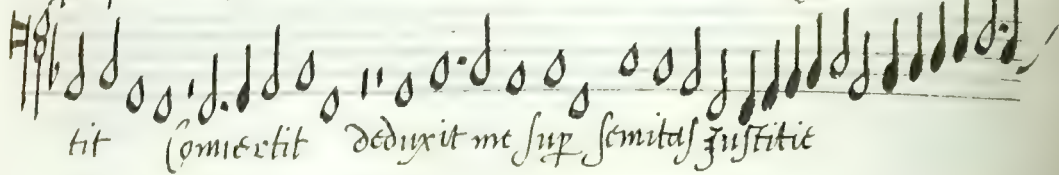 tit Conuertit deduxit me sup semitas Justitie